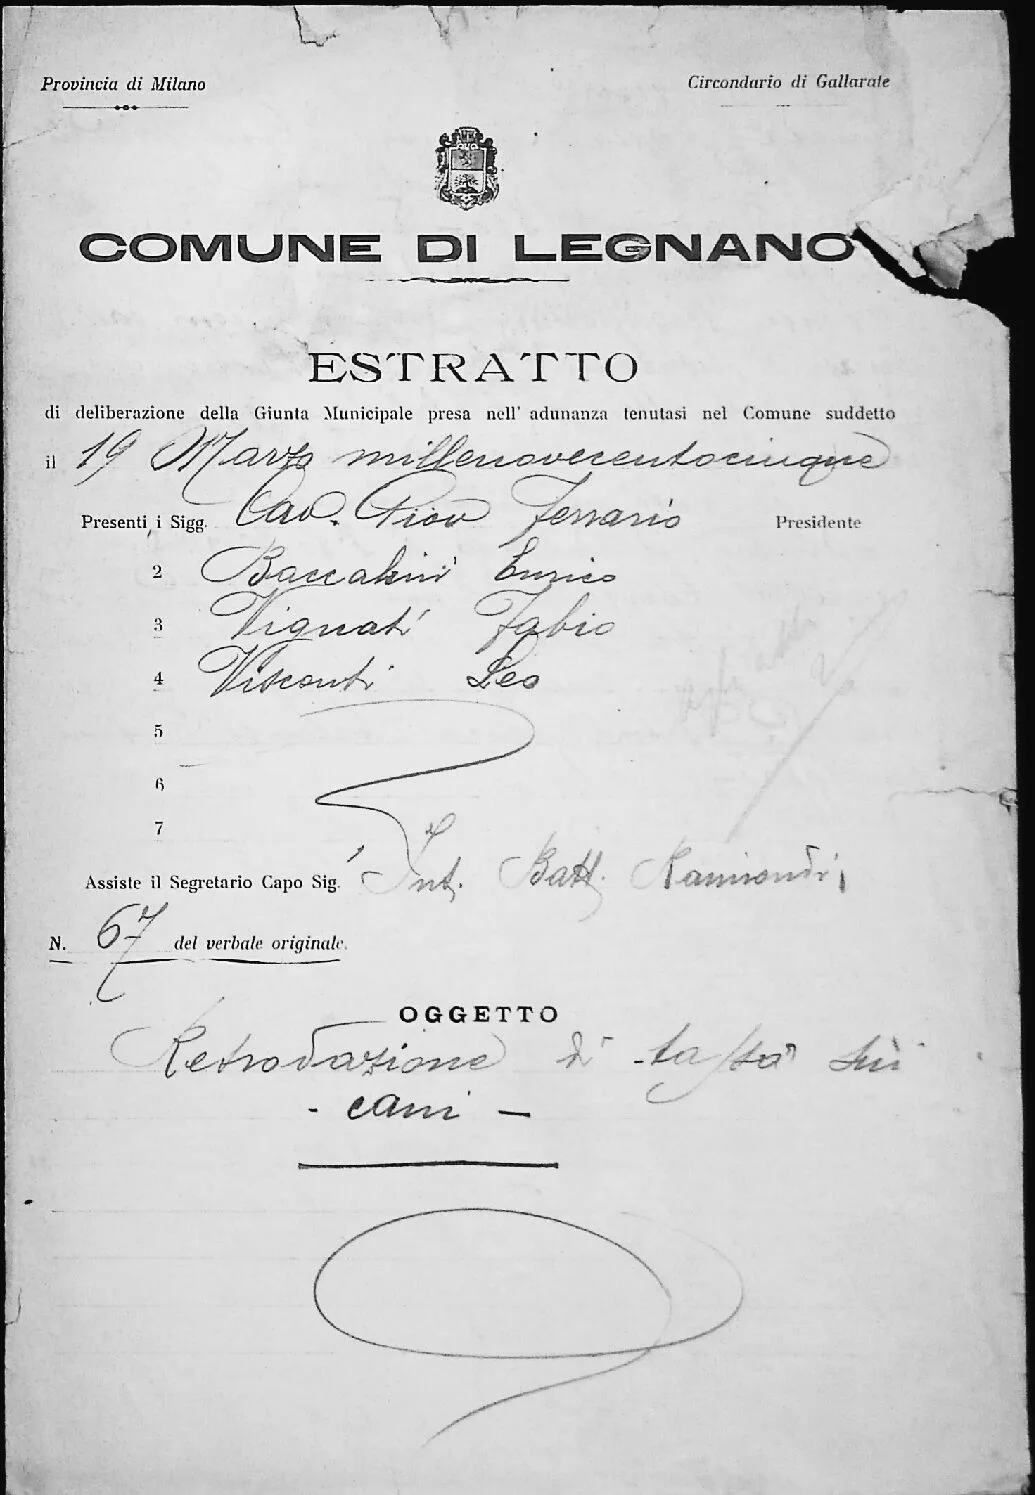 Provincia di Milano
Circondario di Gallarate
COMUNE DI LEGNANO
ESTRATTO
di deliberazione della Giunta Municipale presa nell' adunanza tenutasi nel Comune suddetto
il 19 Marzo millenovecentocinque
Presenti i Sigg. Cav. Piov Ferrario Presidente
2 Baccalini Enrico
3 Vignati Fabio
4 Visconti Leo
5
6
7
Assiste il Segretario Capo Sig. Int. Batt. Raimondi
N. 67 del verbale originale.
OGGETTO
Retrodazione di tassa sui
- cani -